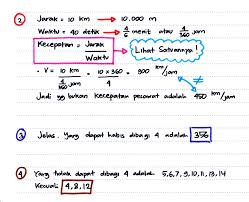 2. Jarak = 10 km → 10.000 m
Waktu = 40 detik → 4/6 menit atau 4/360 jam
Kecepatan = Jarak / Waktu
Lihat Satuannya!
• V = 10 km / 4/360 jam = 10 x 360 / 4 = 900 km/jam
≠
Jadi yg bukan kecepatan pesawat adalah 450 km/jam
3. Jelas. Yang dapat habis dibagi 4 adalah 356
4. Yang tidak dapat dibagi 4 adalah 5,6,7,9,10,11,13,14
Kecuali 4,8,12